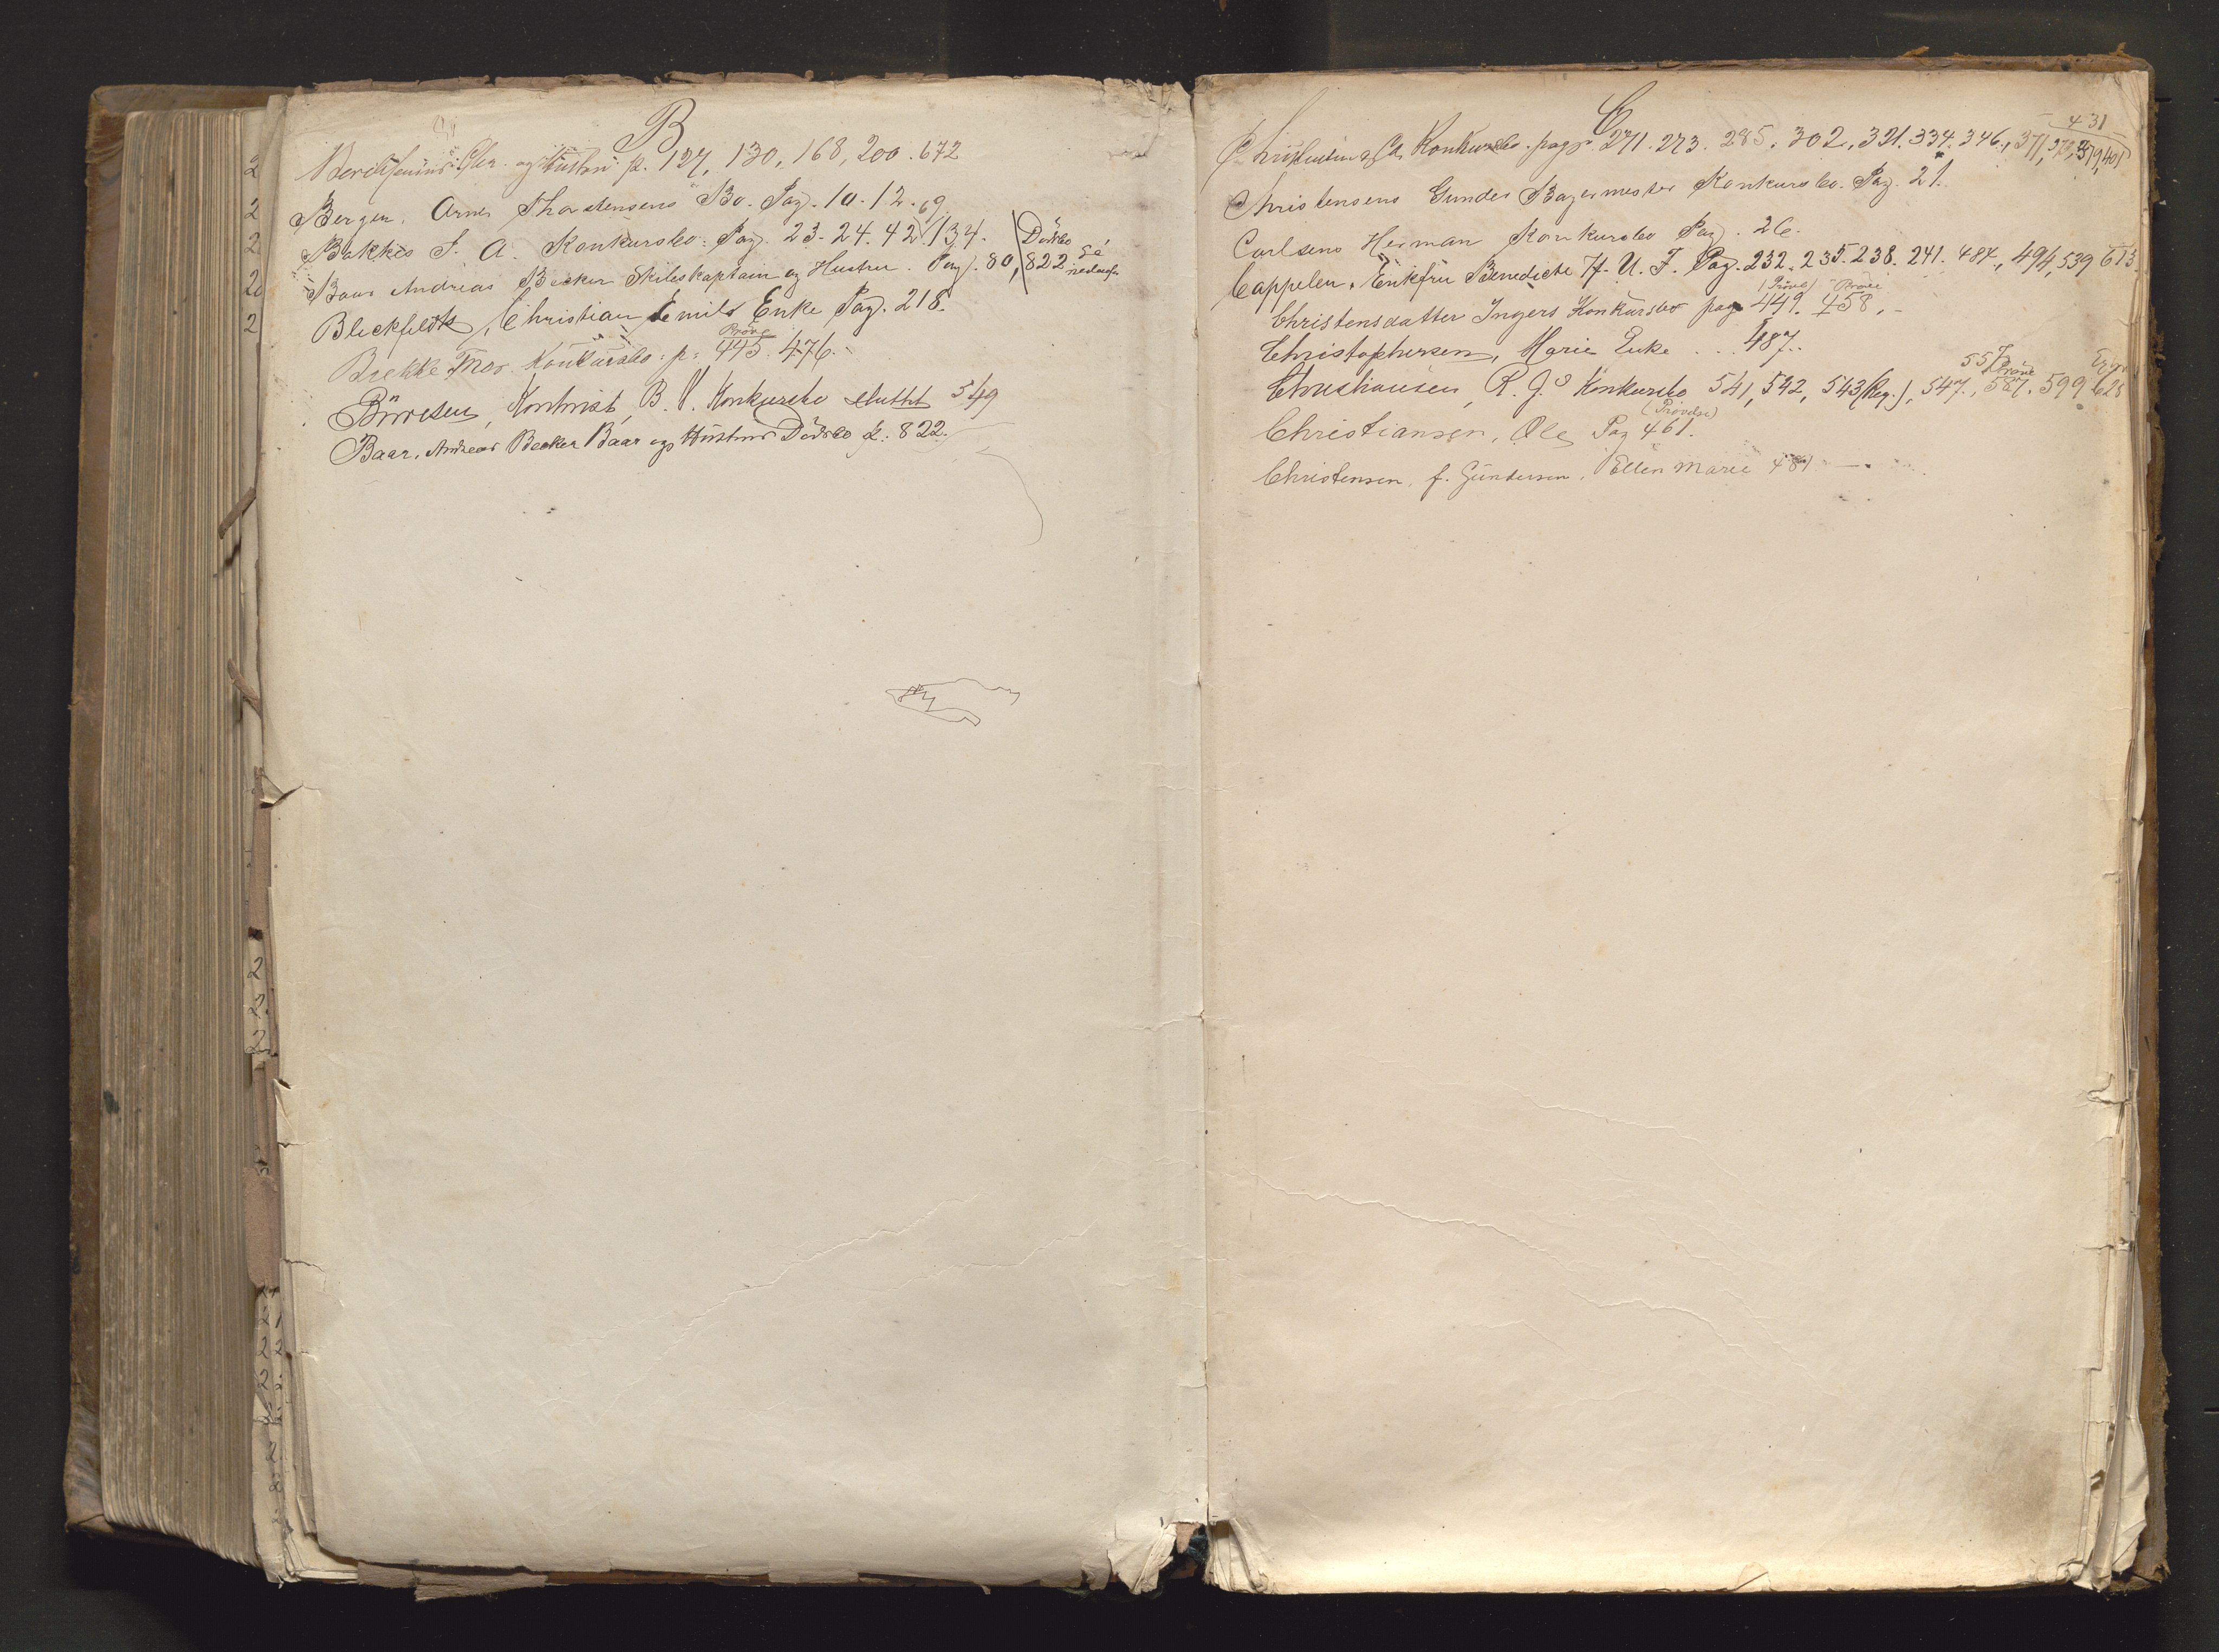 B
og Hustru p. 127, 130, 168, 200. 672
Bergen. Arne Thorstensens Bo. Pag. 10. 12. 69.
Bakkes S. A. Konkursbo: Pag. 23. 24. 42. 134.
Baar Andreas Becker Skibskaptain og Hustru. Pag. 80, 822
Dödsbo
Se nedenfor
Blickfeldts, Christian Emils Enke Pag. 218.
Pröve
Brekke Thor. Konkursbo: p: 445. 476.
B. V. Konkursbo sluttet 549
Baar, Andreas Becker Baar og Hustrus Dödsbo p: 822.
C
431
Konkursbo. pag. 271. 273. 285. 302. 321. 334. 346., 371,
Christensens Gunder Bagermester Konkursbo. Pag. 21.
Carlsens Herman Konkursbo Pag. 26.
Cappelen. Enkefru Benedicte H. U. F. Pag. 232. 235. 238. 241. 484, 494, 539 613
(Pröve) Pröve
Christensdatter Ingers Konkursbo pag 449. 458.
Christophersen, Marie Enke ... 487.
557 Pröve
R. J.s Konkursbo 541, 542, 543 (Reg.), 547., 587. 599 628
(Prövelse)
Christiansen, Ole Pag 461.
Christensen, f. Gundersen, Ellen Marie 481